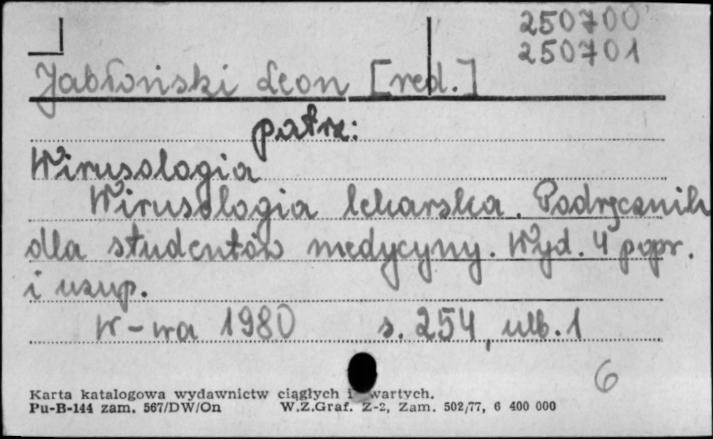 250700
250701
Jabłoński Leon [red.]
patrz:
Wirusologia
Wirusologia lekarska. Podręcznik
dla studentów medycyny. Wyd. 4 popr.
i uzup.
W-wa 1980 s. 254, ulb. 1
6
Karta katalogowa wydawnictw ciągłych i wartych.
Pu-B-144 zam. 567/DW/On W.Z.Graf. Z-2, Zam. 502/77, 6 400 000